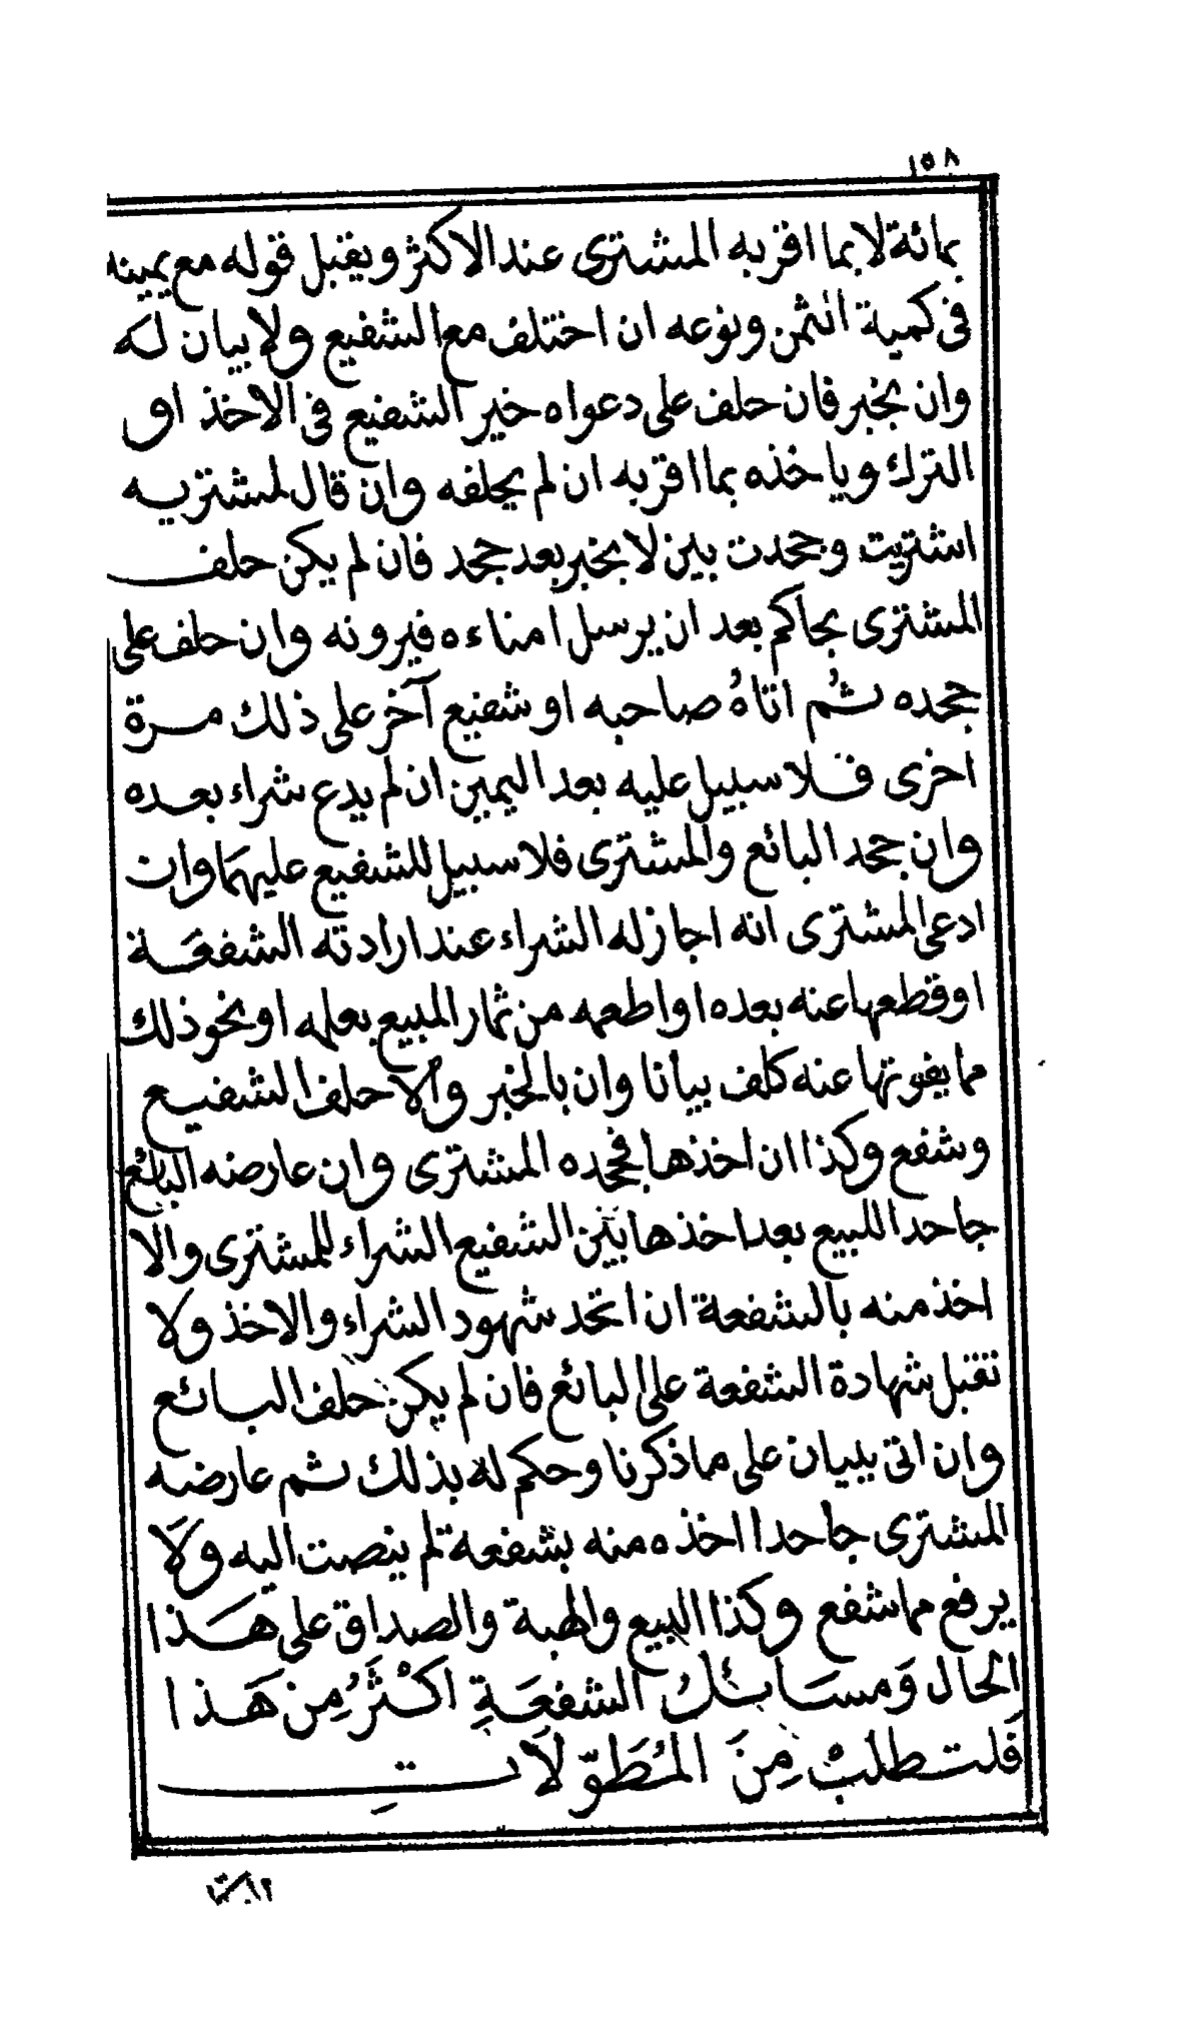 ١٥٨
بمائة لا بما اقر به المشترى عند الاكثر ويقبل قوله مع يمينه
فى كمية الثمن ونوعه ان اختلف مع الشفيع ولا بيان له
وان بخبر فان حلف على دعواه خير الشفيع فى الاخذ او
الترك وياخذه بما اقر به ان لم يحلفه وان قال لمشتريه
اشتريت وجحدت بين لا بخبر بعد جحد فان لم يكن حلف
المشترى بحاكم بعد ان يرسل امناءه فيرونه وان حلف على
جحده ثُم اتاهُ صاحبه او شفيع آخر على ذلك مرة
اخرى فلا سبيل عليه بعد اليمين ان لم يدع شراء بعده
وان جحد البائع والمشترى فلا سبيل للشفيع عليهمَا وان
ادعى المشترى انه اجاز له الشراء عند ارادته الشفعَة
او قطعها عنه بعده او اطعمه من ثمار المبيع بعلمه او نحو ذلك
مما يفوتها عنه كلف بيانا وان بالخبر والا حلف الشفيع
وشفع وكذا ان اخذها فجحده المشترى وان عارضه البائع
جاحدا للبيع بعد اخذها بيّن الشفيع الشراء للمشترى والا
اخذ منه بالشفعة ان اتحد شهود الشراء والاخذ ولا
تقبل شهادة الشفعة على البائع فان لم يكن حلف البائع
وان اتى ببيان على ما ذكرنا وحكم له بذلك ثم عارضه
المشترى جاحدا اخذه منه بشفعة لم ينصت اليه ولَا
يرفع مما شفع وكذا البيع والهبة والصداق على هَذا
الحال وَمسَائلُ الشفعَةِ اكْثَرُ مِن هَذا
فَلتطلبْ مِنَ المُطَوّلَاتِ